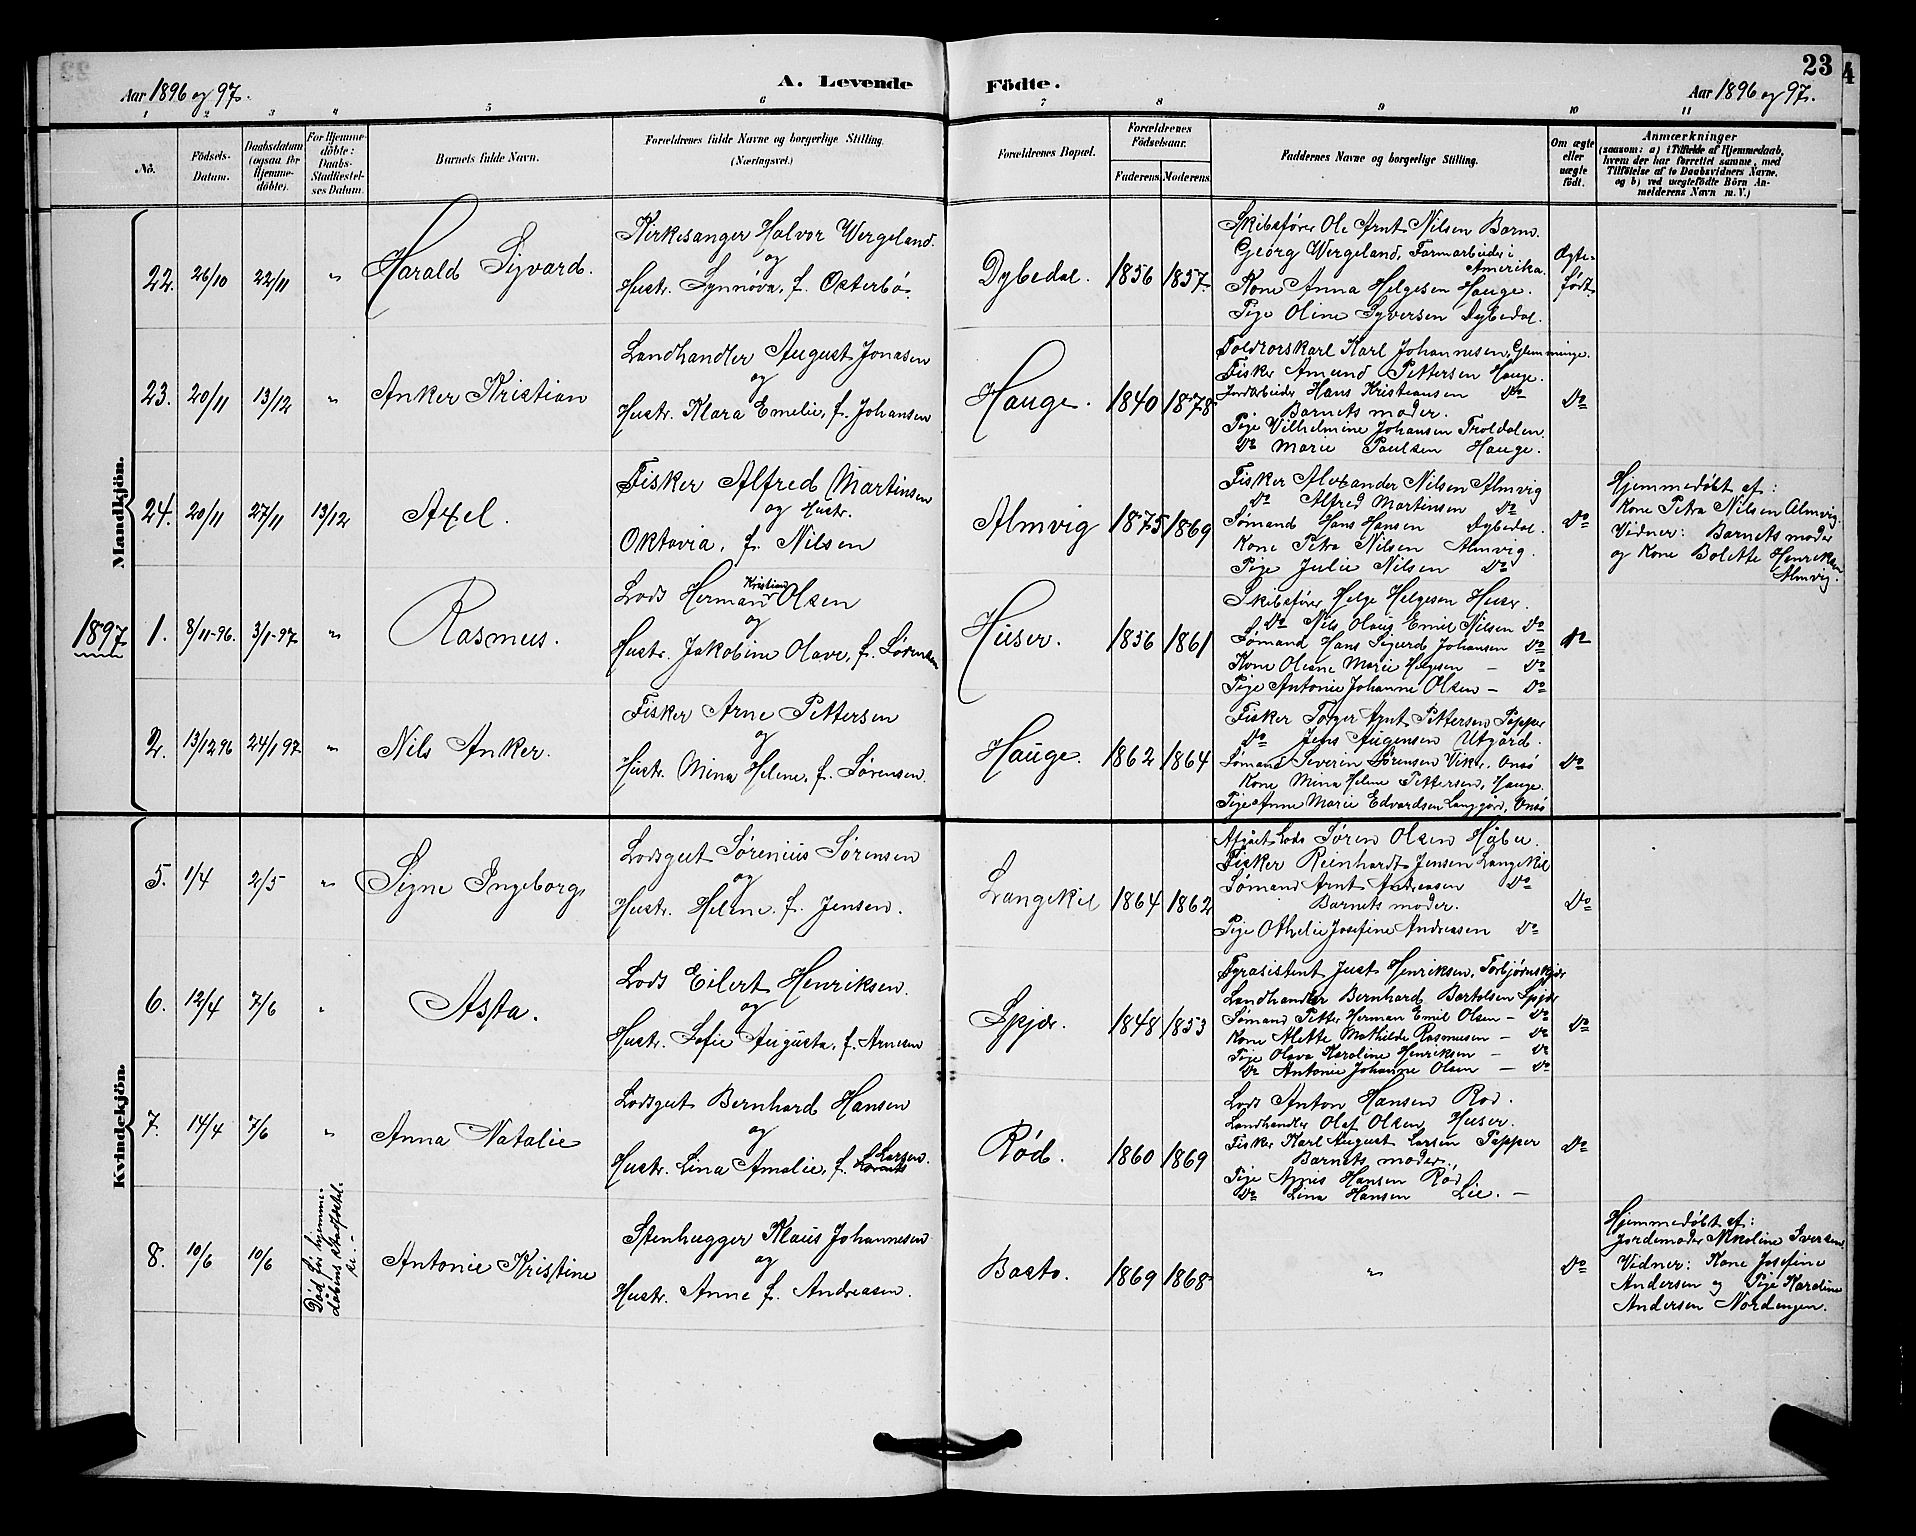 23
Aar 1896 og 97.
A. Levende Födte.
Aar 1896 og 97.
1 2 3 4 5 6 7 8 9 10 11
No.
Födsels-Datum.
Daabsdatum (ogsaa for Hjemme-döbte).
For Hjemme-döbte: Daabs-Stadfæstel-ses Datum.
Barnets fulde Navn.
Forældrenes fulde Navne og borgerlige Stilling. (Næringsvei.)
Forældrenes Bopæl.
Forældrenes Födselsaar.
Faderens
Moderens
Faddernes Navne og borgerlige Stilling.
Om ægte eller uægte födt.
Anmærkninger
(saasom: a) i Tilfælde af Hjemmedaab,
hvem der har forrettet samme, med
Tilföielse af to Daabsvidners Navne,
og b) ved uægtefödte Börn An-
melderens Navn m. V.)
Mandkjön.
22. 26/10 22/11 " Harald Sigvard.
Kirkesanger Halvor Wergeland.
og
Hustr. Synnøva, f. Østerbø.
Dybedal. 1856 1857
Skibsfører Ole Arnt Nilsen Barm.
Georg Wergeland, Farmarbeider i
Amerika.
Kone Anna Helgesen Hauge.
Pige Oline Syversen Dybedal.
Ægte-
født.
23. 20/11 13/12 " Anker Kristian
Landhandler August Jonasen
og
Hustr. Klara Emelie, f. Johansen
Hauge. 1840 1878
Karl Johannesen, Glemminge.
Fisker Amund Pettersen Hauge.
Jordarbeider Hans Kristiansen Do
Barnets moder.
Pige Vilhelmine Johansen Troldalen.
Do Marie Paulsen Hauge.
Do
24. 20/11 27/11 13/12 Axel.
Fisker Alfred Martinsen
og Hustr.
Oktavia, f. Nilsen
Almvig 1875 1869
Fisker Alexander Nilsen Almvig
Do Alfred Martinsen Do
Sømand Hans Hansen Dybedal.
Kone Petra Nilsen Almvig.
Pige Julie Nilsen Do
Do
Hjemmedøbt af:
Kone Petra Nilsen Almvig.
Vidner: Barnets moder
og Kone Bolette Henriksen
Almvig.
1897 1. 8/11-96. 3/1-97 " Rasmus.
Lods Herman Kristian Olsen
og
Hustr. Jakobine Olave, f. Sørensen
Huser. 1856 1861
Skibsfører Helge Helgesen Huser.
Do Nils Olaus Emil Nilsen Do
Sømand Hans Sigurd Johansen Do
Kone Oleane Marie Helgesen - Do
Pige Antonie Johanne Olsen - Do
Do
2. 13/12 96 24/1 97 " Nils Anker.
Fisker Arne Pettersen
og
Hustr. Mina Helene, f. Sørensen.
Hauge. 1862 1864
Fisker Torger Arnt Pettersen Papper
Do Jens Augensen Utgård.
Sømand Severin Sørensen Viker, Onsö
Kone Mina Helene Pettersen, Hauge.
Pige Anne Marie Edvardsen Langgård, Onsö
Do
Kvindekjön.
5. 1/4 2/5 " Signe Ingeborg
Lodsgut Sørenius Sørensen
og
Hustr. Helene, f. Jensen.
Langekil 1864 1862
Afgået Lods Søren Olsen Høbu.
Fisker Reinhardt Jensen Langekil
Sømand Arnt Andreasen Do
Barnets moder.
Pige Othelie Josefine Andreasen Do
Do
6. 12/4 7/6 " Asta.
Lods Eilert Henriksen.
og
Hustr. Sofie Augusta, f. Arnesen
Spjær. 1848 1853
Fyrasistent Just Henriksen, Torbjørnskjær
Landhandler Bernhard Bartolsen Spjær
Sømand Petter Herman Emil Olsen - Do
Kone Alette Mathilde Rasmusen - Do
Pige Olava Karoline Henriksen - Do
Do Antonie Johanne Olsen - Do
Do
7. 14/4 7/6 " Anna Natalie
Lodsgut Bernhard Hansen
og
Hustr. Lina Amalie, f. Larsen.
Rød. 1860 1869
Lods Anton Hansen Rød.
Landhandler Olaf Olsen Huser.
Fisker Karl August Larsen Papper
Barnets moder.
Pige Agnes Hansen Rød
Do Lina Hansen Lie. -
Do
8. 10/6 10/6
Død før hjemme-
dåbens stadfæstel-
se. -
Antonie Kristine
Stenhugger Klaus Johannesen
og
Hustr. Anne f. Andreasen.
Basto. 1869 1868
"
Do
Hjemmedøbt af:
Jordemoder Nikoline Iversen
Vidner: Kone Josefine
Andersen og Pige Karoline
Andersen Nordengen.